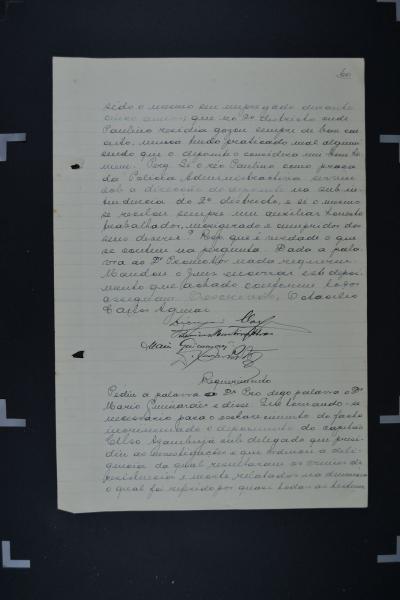 60
sido o mesmo seu empregado durante
cinco annos, que no 2º districto onde
Paulino residia gozou sempre de bom con
ceito, nunca tendo praticado mal algum
sendo que o depoente o considera um bom ho
mem. Perg. Si o réo Paulino como praça
da Policia Administractiva serviu
sob a direcção do depoente na sub in
tendencia do 2º districto, e se o mesmo
se revelou sempre um auxiliar honesto
trabalhador, morigerado e cumpridor dos
seus deveres? Resp. que é verdade o que
se contem na pergunta. Dado a pala
vra ao Dr Promotor nada requereu.
Mandou o Juiz encerrar este depoi
mento que achado conforme todos
assignam. Octacilio
Carlos Aguiar
Mario Guimarães
Requerimento
Pediu a palavra o Dr Pro digo palavra o Dr
Mario Guimarães e disse: Lhe tornando-se
necessario para o esclarecimento do facto
incriminado o depoimento do capitão
Celso Azambuja sub delegado que presi
diu as investigações e que ordenou a dili
gencia da qual resultaram os crimes de
resistencia e morte relatados na denuncia
o qual foi referido por quasi todas as testemu